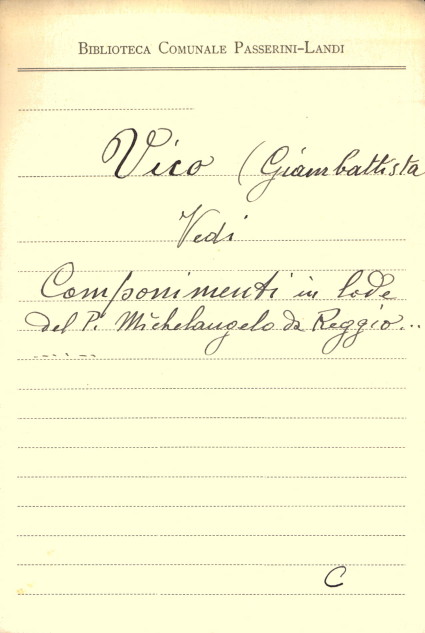 BIBLIOTECA COMUNALE PASSERINI-LANDI
Vico (Giambattista
Vedi
Componimenti in lode
del P. Michelangelo da Reggio...
C